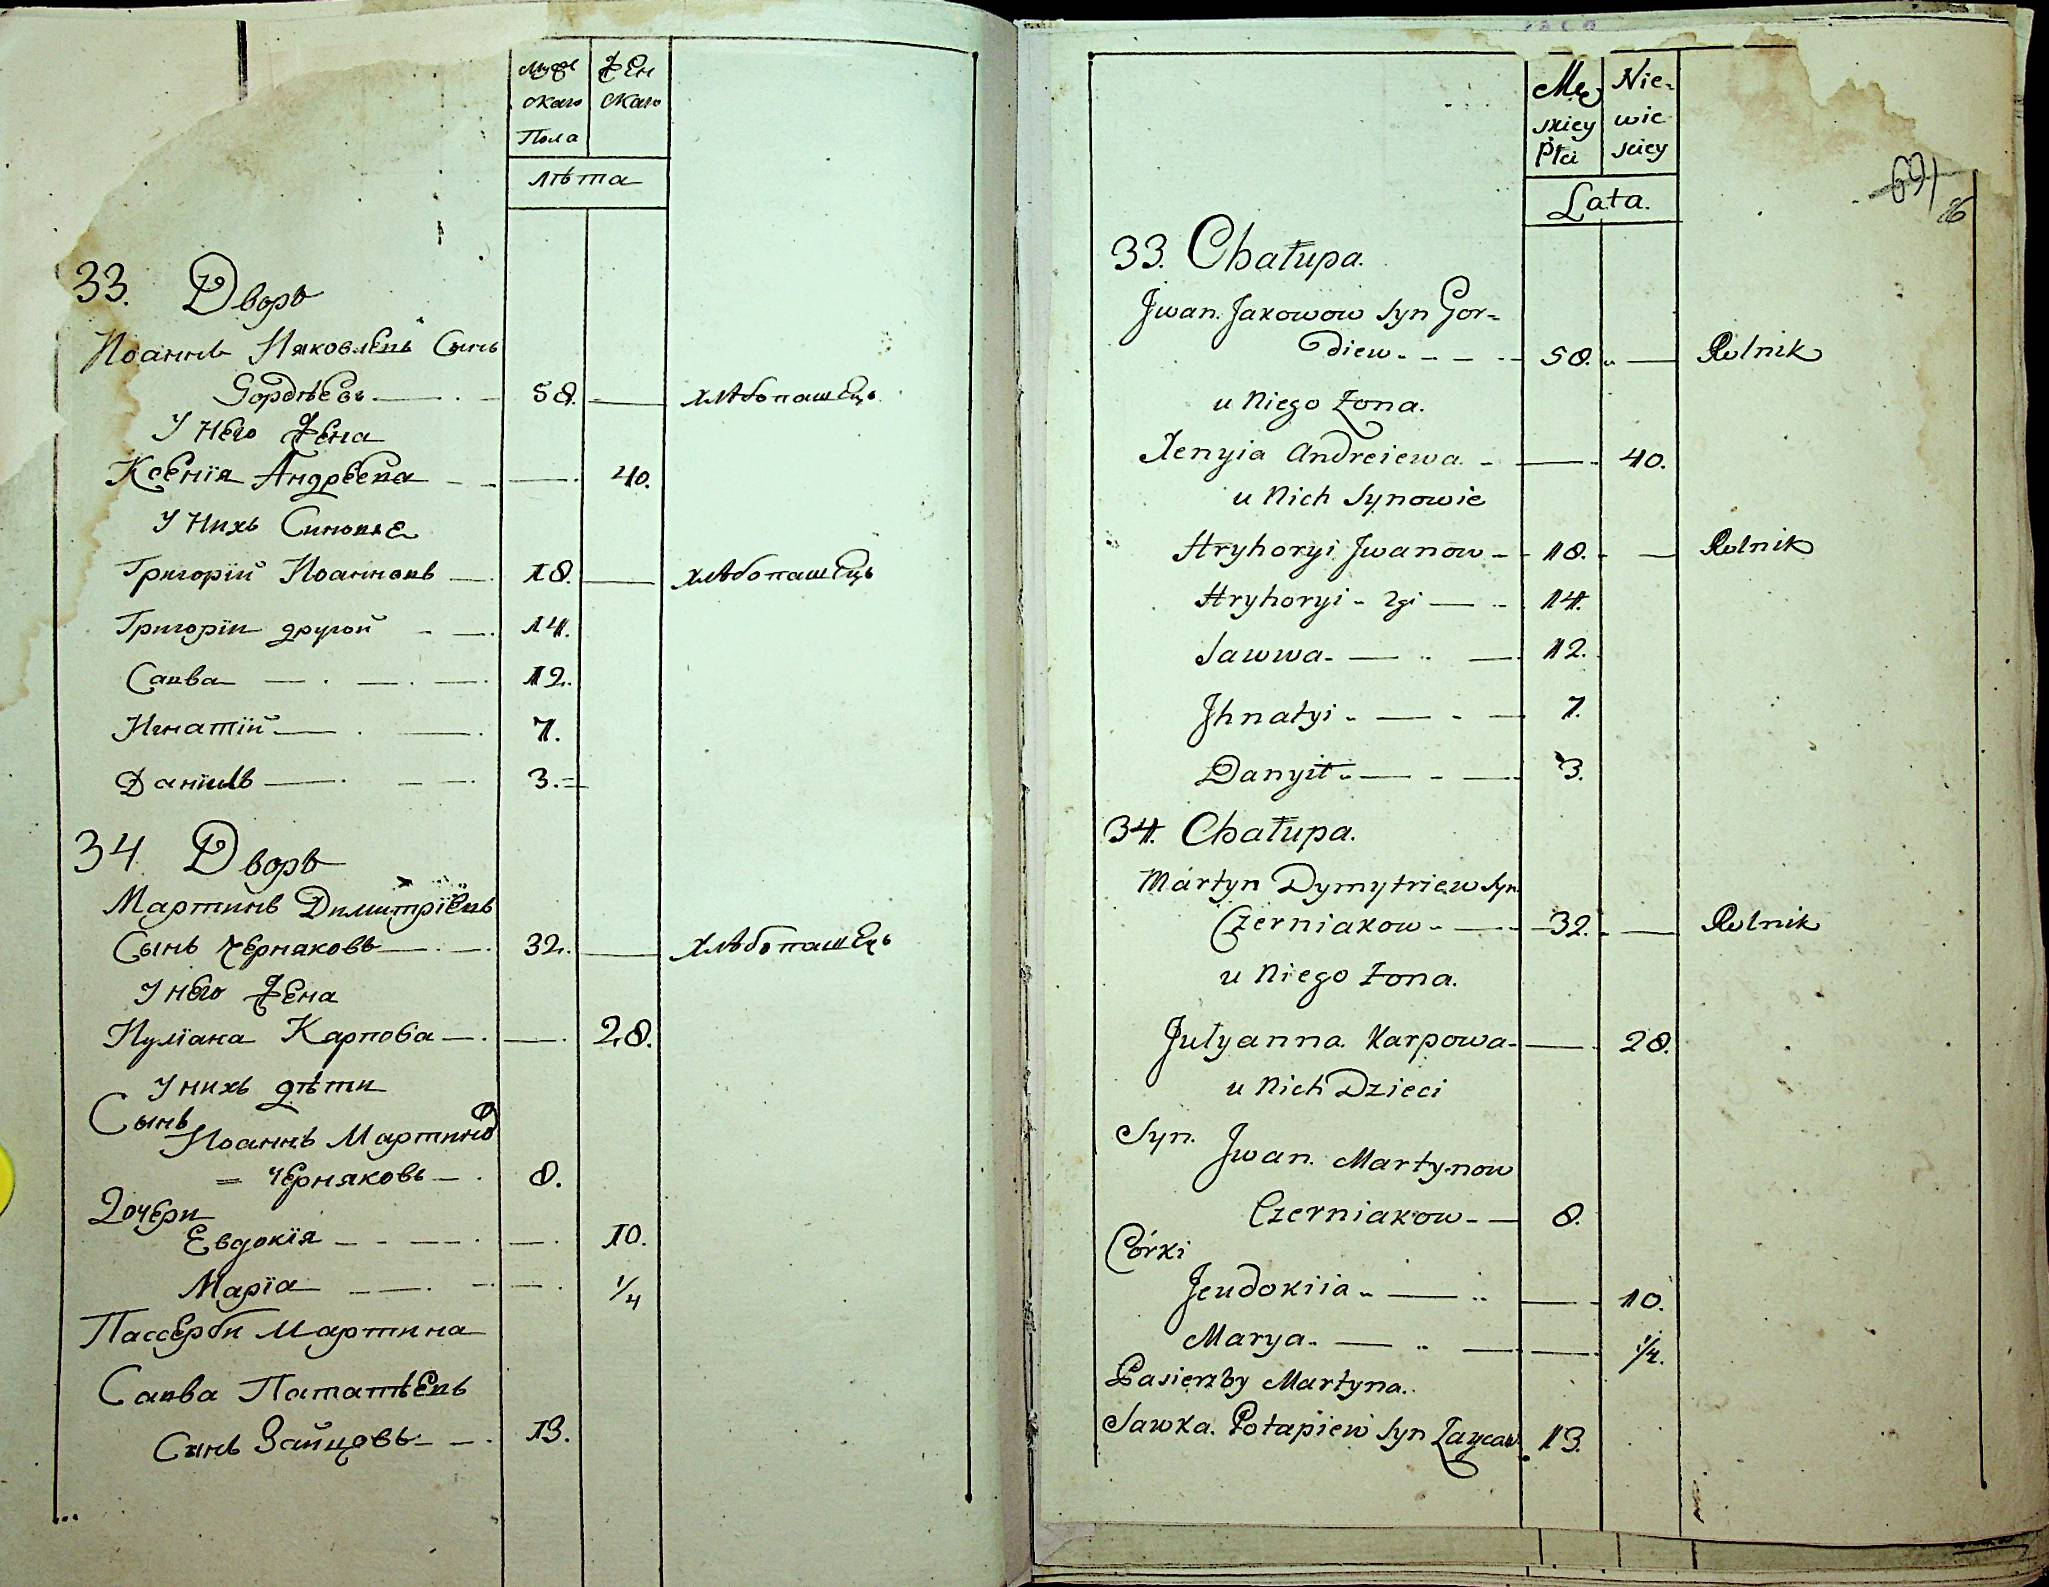 Мужс Жен
скаго скаго
Пола
лѣта
33. Дворъ
Иоаннъ Ияковлевъ Сынъ
Гордѣевъ 58. хлѣбопашецъ
У него Жена
Ксенія Андрѣева 40.
У нихъ Синовье
Григорій Иоанновъ 18. хлѣбопашецъ
Григорій другой 14.
Савва 12.
Игнатій 7.
Даніилъ 3.
34 Дворъ
Мартинъ Димитріевъ
Сынъ Черняковъ 32. хлѣбопашецъ
У него Жена
Иуліана Карпова 28.
У нихъ дѣти
Сынъ
Иоаннъ Мартиновъ
= Черняковъ 8.
Дочери
Евдокія 10.
Марія 1/4
Пассерби Мартина
Савва Патапіевъ
Сынъ Зайцовъ 13.
Mę Nie-
skiey wie
Płci skiey
Lata.
69
86
33. Chałupa.
Jwan. Jakowow syn Gor=
diew 58. Rolnik
u Niego Żona.
Xenyia Andreiewa 40.
u Nich Synowie
Hryhoryi Jwanow 18. Rolnik
Hryhoryi 2gi 14.
Sawwa 12.
Jhnatyi 7.
Danyił 3.
34. Chałupa.
Martyn Dymytriew syn
Czerniakow 32. Rolnik
u Niego Żona.
Julyanna Karpowa 28.
u Nich Dzieci
Syn. Jwan. Martynow
Czerniakow 8.
Córki
Jeudokiia 10.
Marya 1/4.
Pasierzby Martyna.
Sawka. Potapiew syn Zaycow 13.